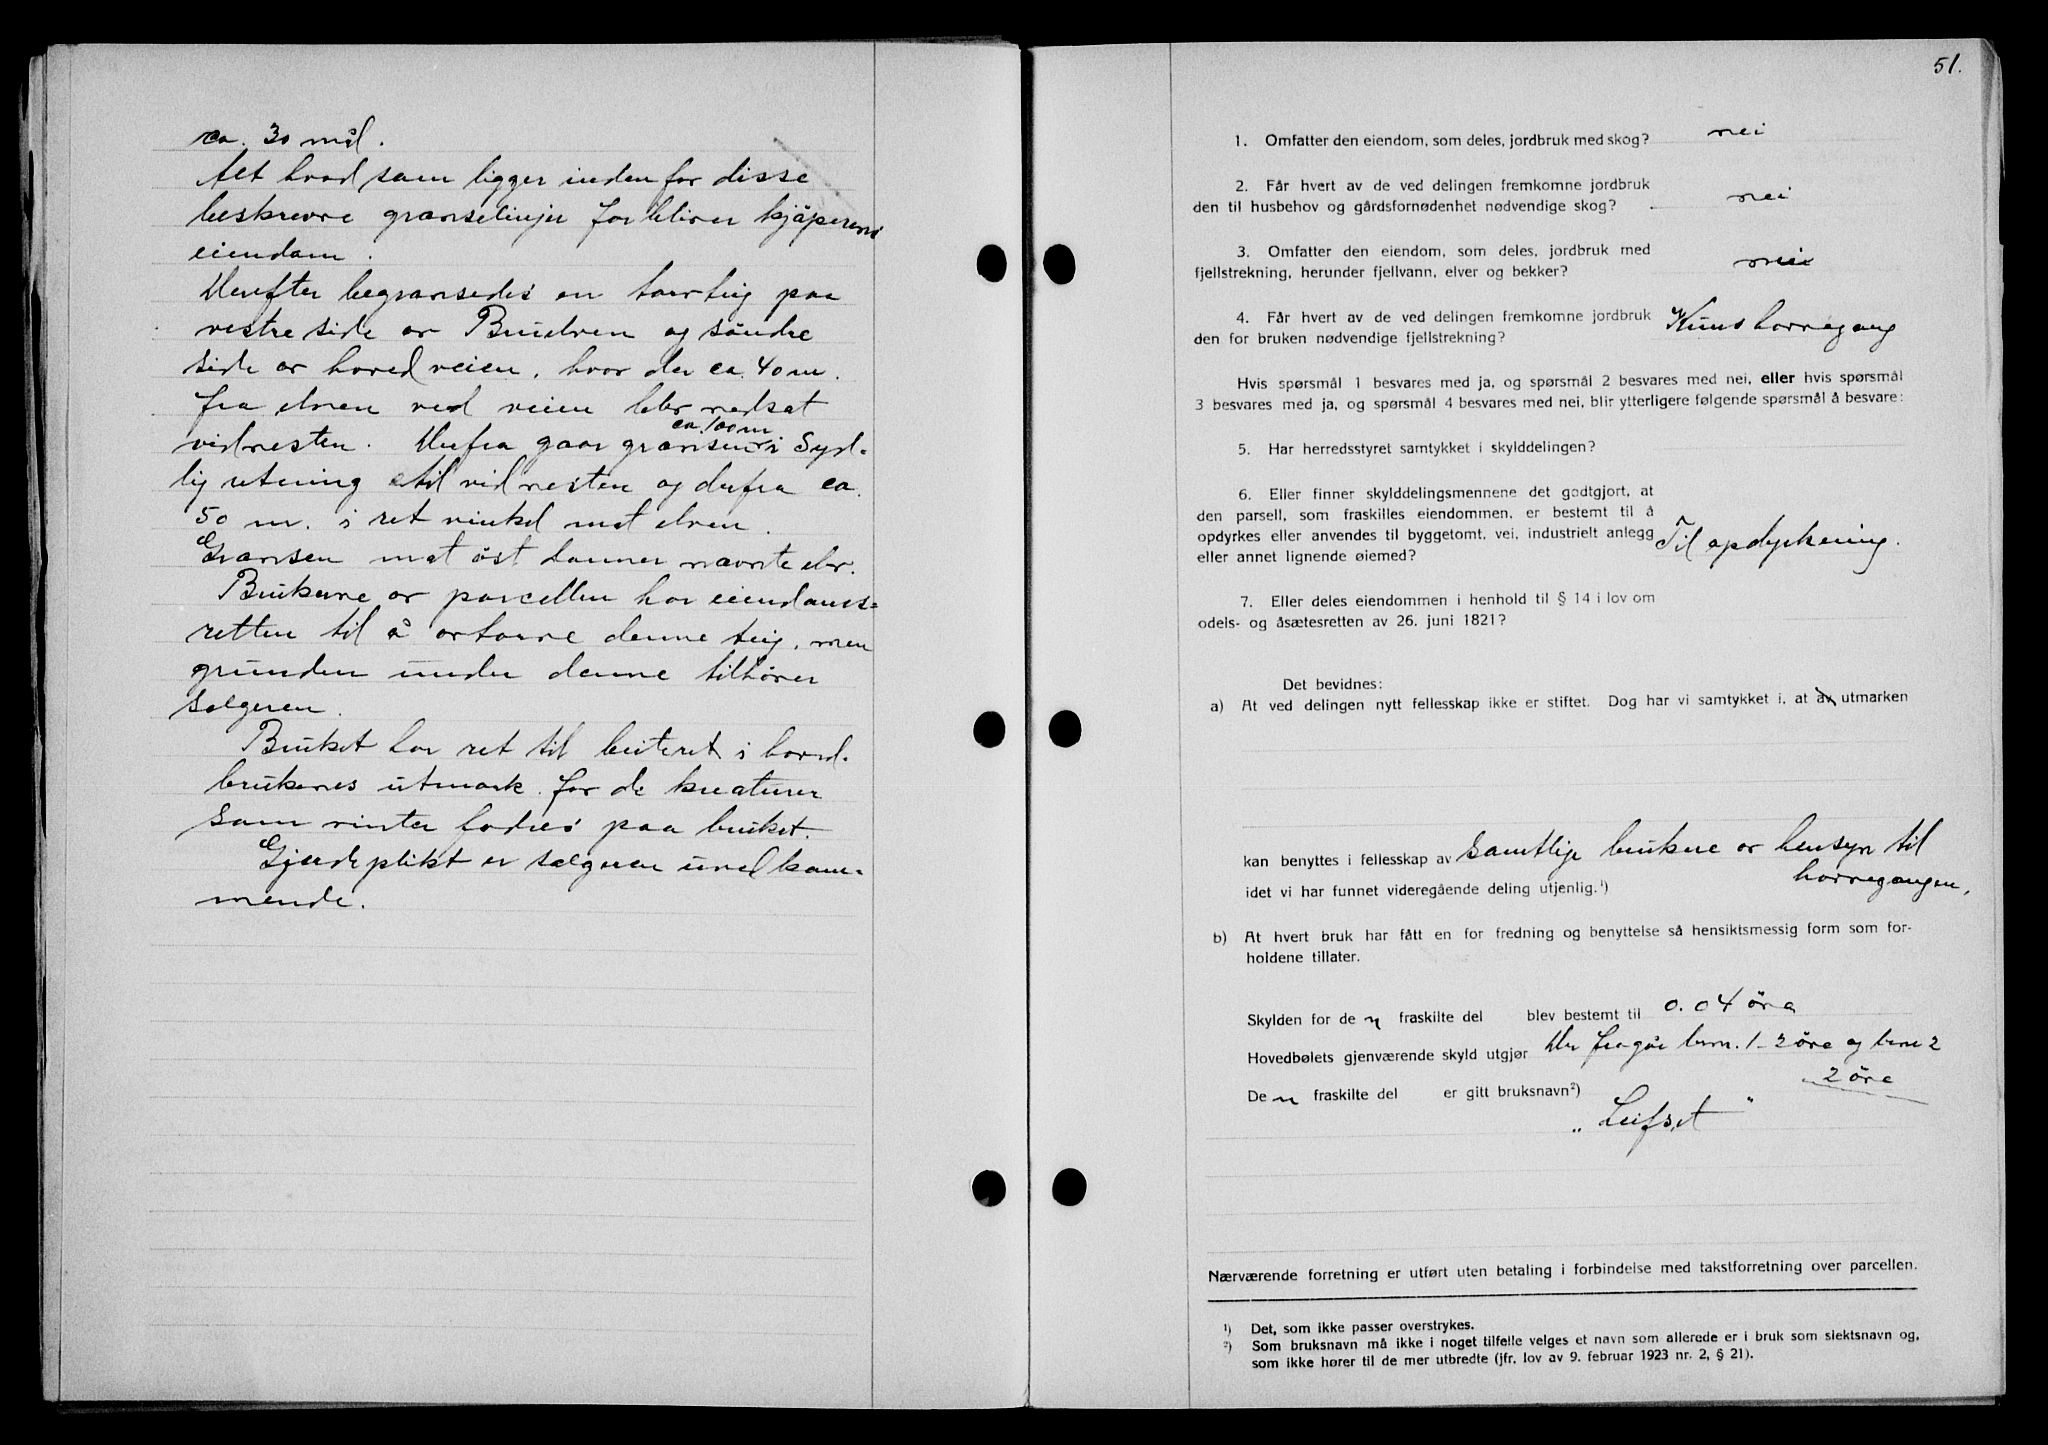 ca. 30 mål.
Alt hvad som ligger inden for disse
beskrevne grænselinjer forbliver kjøperens
eiendom.
Derefter begrænsedes en torvteig paa
vestre side av Bruelven og søndre
side av hovedveien, hvor der ca. 40 m.
fra elven ved veien blev nedsat
vidnesten. Derfra gaar grænsen ca. 100 m i Syd-
lig retning til vidnesten og derfra ca.
50 m. i ret vinkel mot elven.
Grænsen mot øst danner nævnte elv.
Brukerne av parcellen har eiendoms-
retten til å avtorve denne teig, men
grunden under denne tilhører
sælgeren.
Bruket har ret til beiteret i hoved-
brukenes utmark for de kreaturer
som vinter fødres paa bruket.
Gjerdeplikt er sælgeren uvedkom-
mende.
51.
1. Omfatter den eiendom, som deles, jordbruk med skog? nei
2. Får hvert av de ved delingen fremkomne jordbruk
den til husbehov og gårdsfornødenhet nødvendige skog? nei
3. Omfatter den eiendom, som deles, jordbruk med
fjellstrekning, herunder fjellvann, elver og bekker? nei
4. Får hvert av de ved delingen fremkomne jordbruk Kuns havnegang
den for bruken nødvendige fjellstrekning?
Hvis spørsmål 1 besvares med ja, og spørsmål 2 besvares med nei, eller hvis spørsmål
3 besvares med ja, og spørsmål 4 besvares med nei, blir ytterligere følgende spørsmål å besvare:
5. Har herredsstyret samtykket i skylddelingen?
6. Eller finner skylddelingsmennene det godtgjort, at
den parsell, som fraskilles eiendommen, er bestemt til å
opdyrkes eller anvendes til byggetomt, vei, industrielt anlegg Til opdyrkening.
eller annet lignende øiemed?
7. Eller deles eiendommen i henhold til § 14 i lov om
odels- og åsætesretten av 26. juni 1821?
Det bevidnes:
a) At ved delingen nytt fellesskap ikke er stiftet. Dog har vi samtykket i, at av utmarken
kan benyttes i fellesskap av samtlige brukere av hensyn til
havnegangen,
idet vi har funnet videregående deling utjenlig.¹)
b) At hvert bruk har fått en for fredning og benyttelse så hensiktsmessig form som for-
holdene tillater.
Skylden for de n fraskilte del blev bestemt til 0.04 øre
Hovedbølets gjenværende skyld utgjør Der fragår brn. 1 - 2 øre og brn 2
2 øre
De n fraskilte del er gitt bruksnavn²)
„Leifset"
Nærværende forretning er utført uten betaling i forbindelse med takstforretning over parcellen.
¹) Det, som ikke passer overstrykes.
²) Som bruksnavn må ikke i noget tilfelle velges et navn som allerede er i bruk som slektsnavn og,
som ikke hører til de mer utbredte (jfr. lov av 9. februar 1923 nr. 2, § 21).